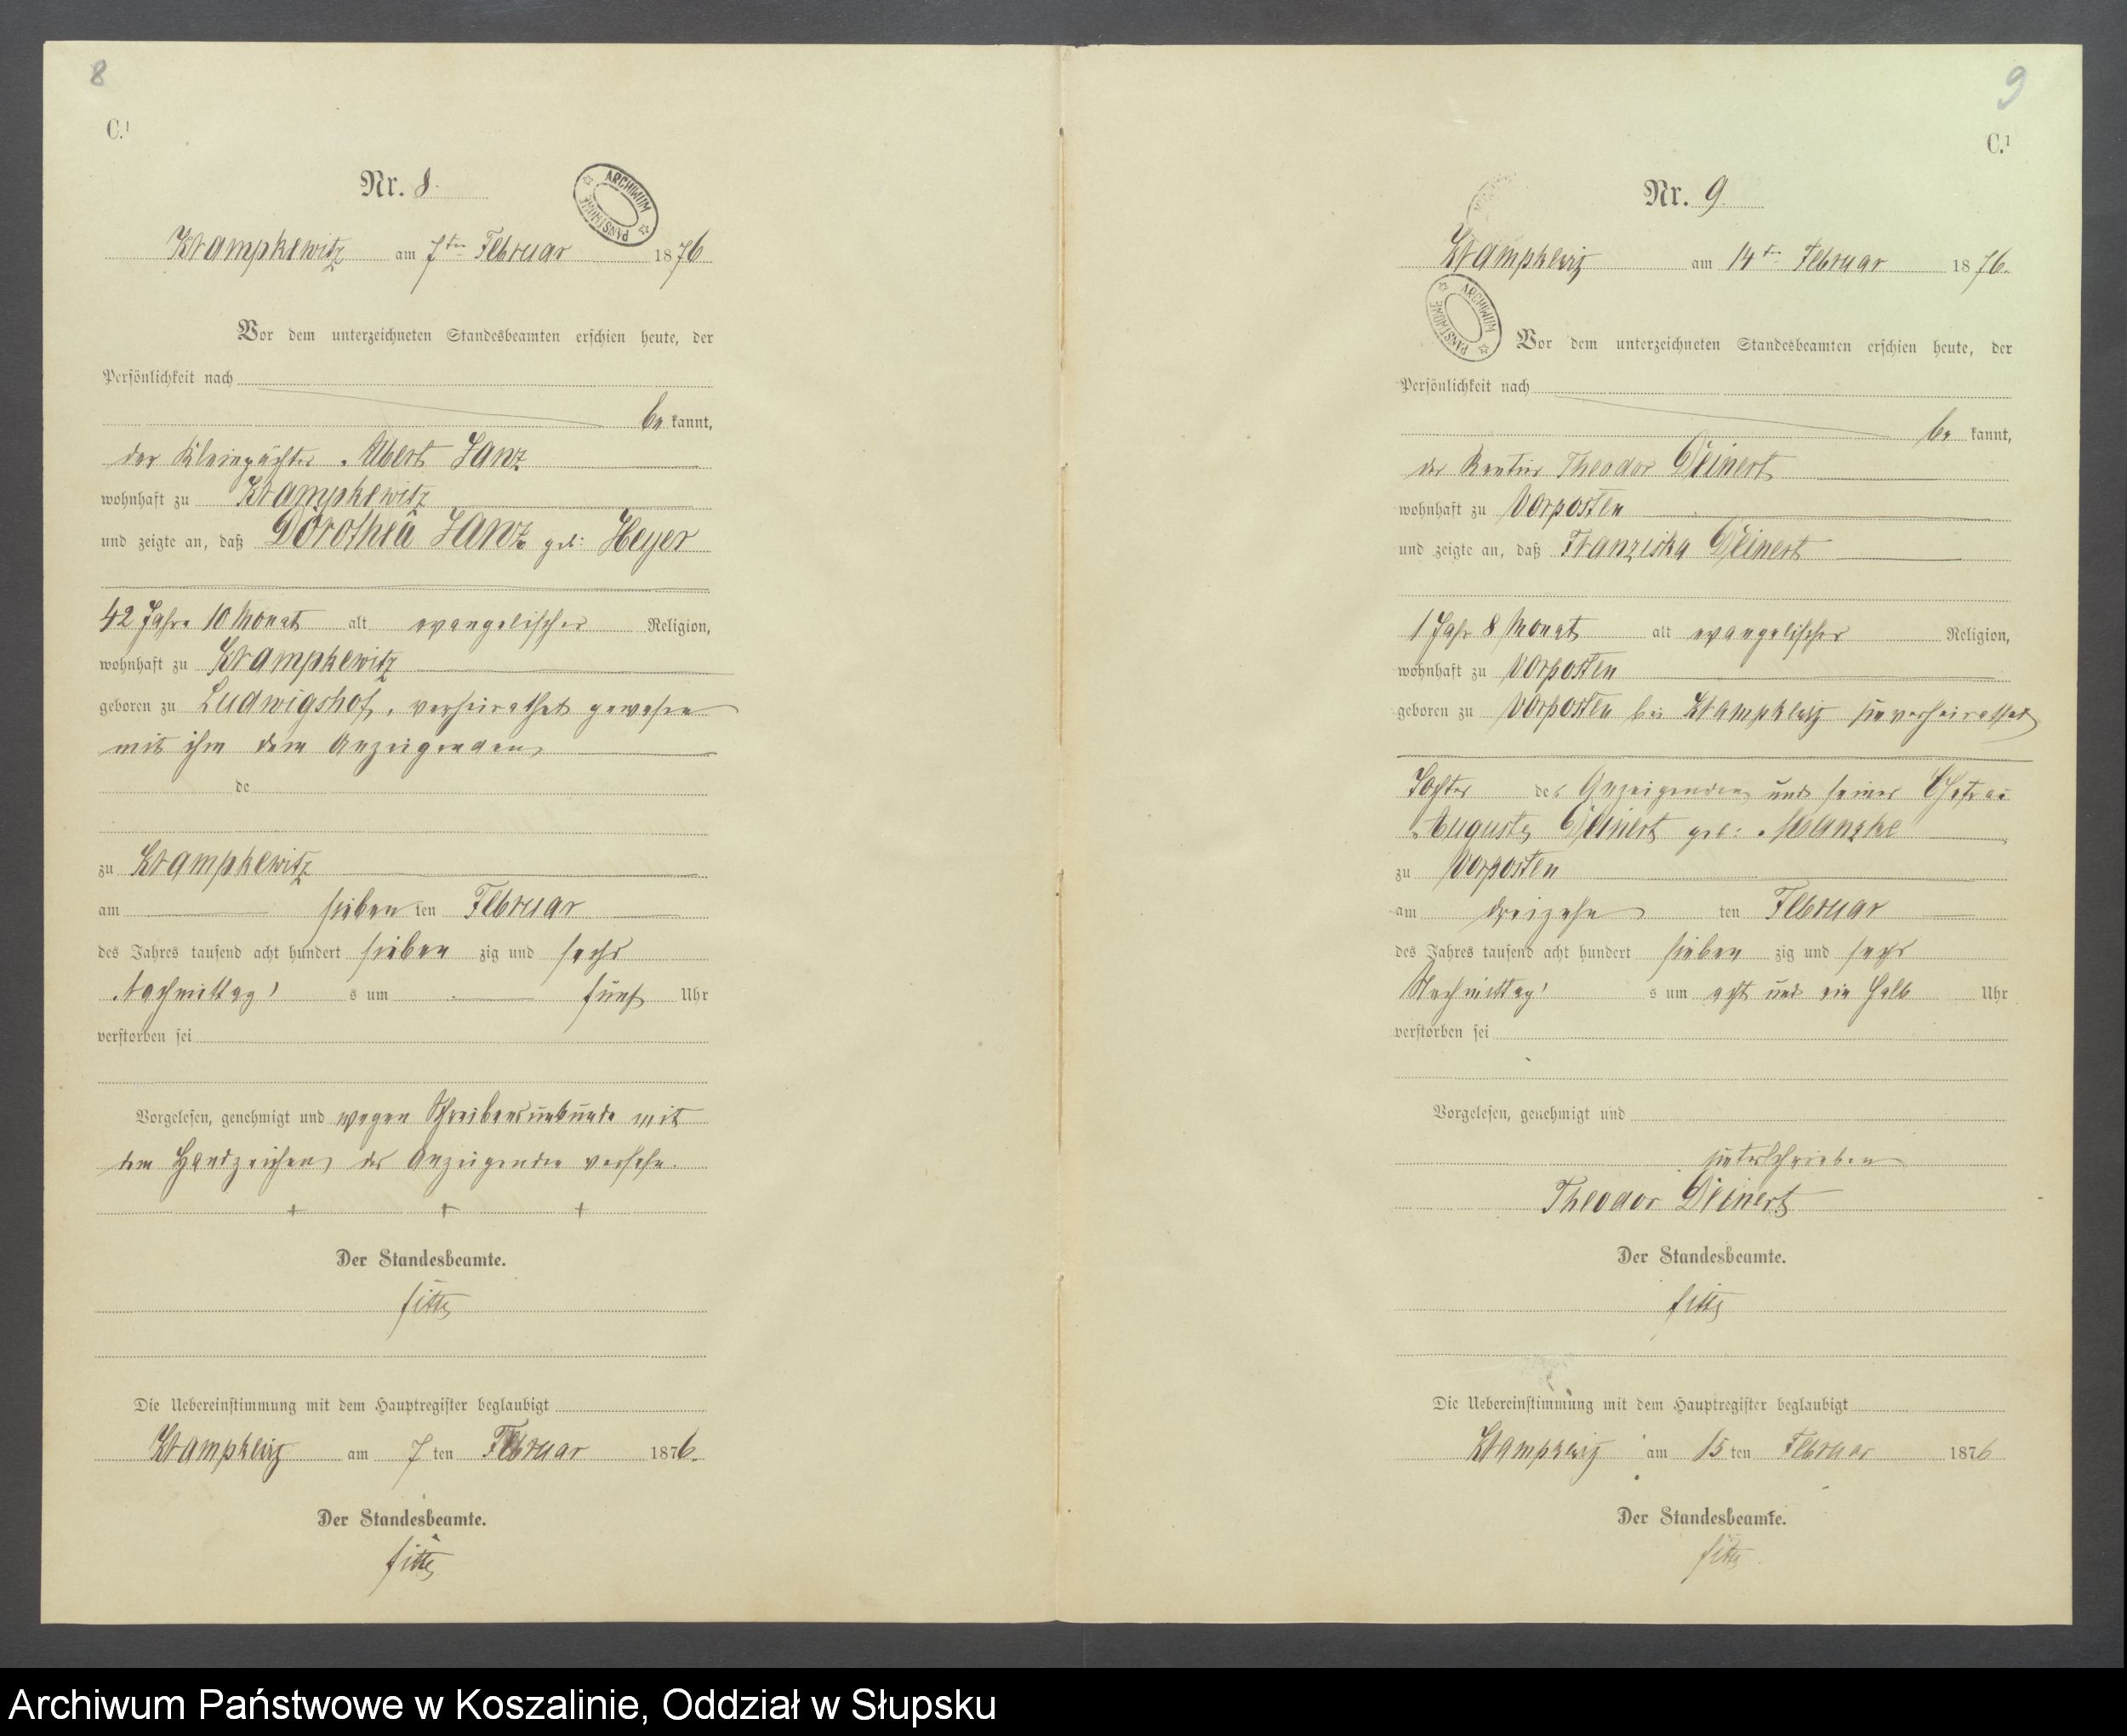 8
C.1
Nr. 8.
ARCHIWUM PAŃSTWOWE
Krampkewitz am 7ten Februar 1876
Vor dem unterzeichneten Standesbeamten erschien heute, der
Persönlichkeit nach
be kannt,
der Kleinpächter Albert Janz
wohnhaft zu Krampkewitz
und zeigte an, daß Dorothea Janz geb: Heyer
42 Jahre 10 Monat alt evangelischer Religion,
wohnhaft zu Krampkewitz
geboren zu Ludwigshof, verheirathet gewesen
mit ihm dem Anzeigenden
de
zu Krampkewitz
am sieben ten Februar
des Jahres tausend acht hundert sieben zig und sechs
Nachmittag s um fünf Uhr
verstorben sei
Vorgelesen, genehmigt und wegen Schreibensunkunde mit
dem Handzeichen des Anzeigenden versehn.
+ + +
Der Standesbeamte.
Die Uebereinstimmung mit dem Hauptregister beglaubigt
Krampkewitz am 7 ten Februar 1876.
Der Standesbeamte.
9
C.1
Nr. 9.
Krampkewitz am 14ten Februar 1876.
ARCHIWUM PAŃSTWOWE
Vor dem unterzeichneten Standesbeamten erschien heute, der
Persönlichkeit nach
be kannt,
der Theodor Deinert
wohnhaft zu Vorposten
und zeigte an, daß Franziska Deinert
1 Jahr 8 Monat alt evangelischer Religion,
wohnhaft zu Vorposten
geboren zu Vorposten bei Krampkewitz unverheirathet
Tochter des Anzeigenden und seiner Ehefrau
Auguste Deinert geb: Manzke
zu Vorposten
am dreizehn ten Februar
des Jahres tausend acht hundert sieben zig und sechs
Nachmittag s um acht und ein halb Uhr
verstorben sei
Vorgelesen, genehmigt und
unterschrieben
Theodor Deinert
Der Standesbeamte.
Die Uebereinstimmung mit dem Hauptregister beglaubigt
Krampkewitz am 15 ten Februar 1876
Der Standesbeamte.
Archiwum Państwowe w Koszalinie, Oddział w Słupsku